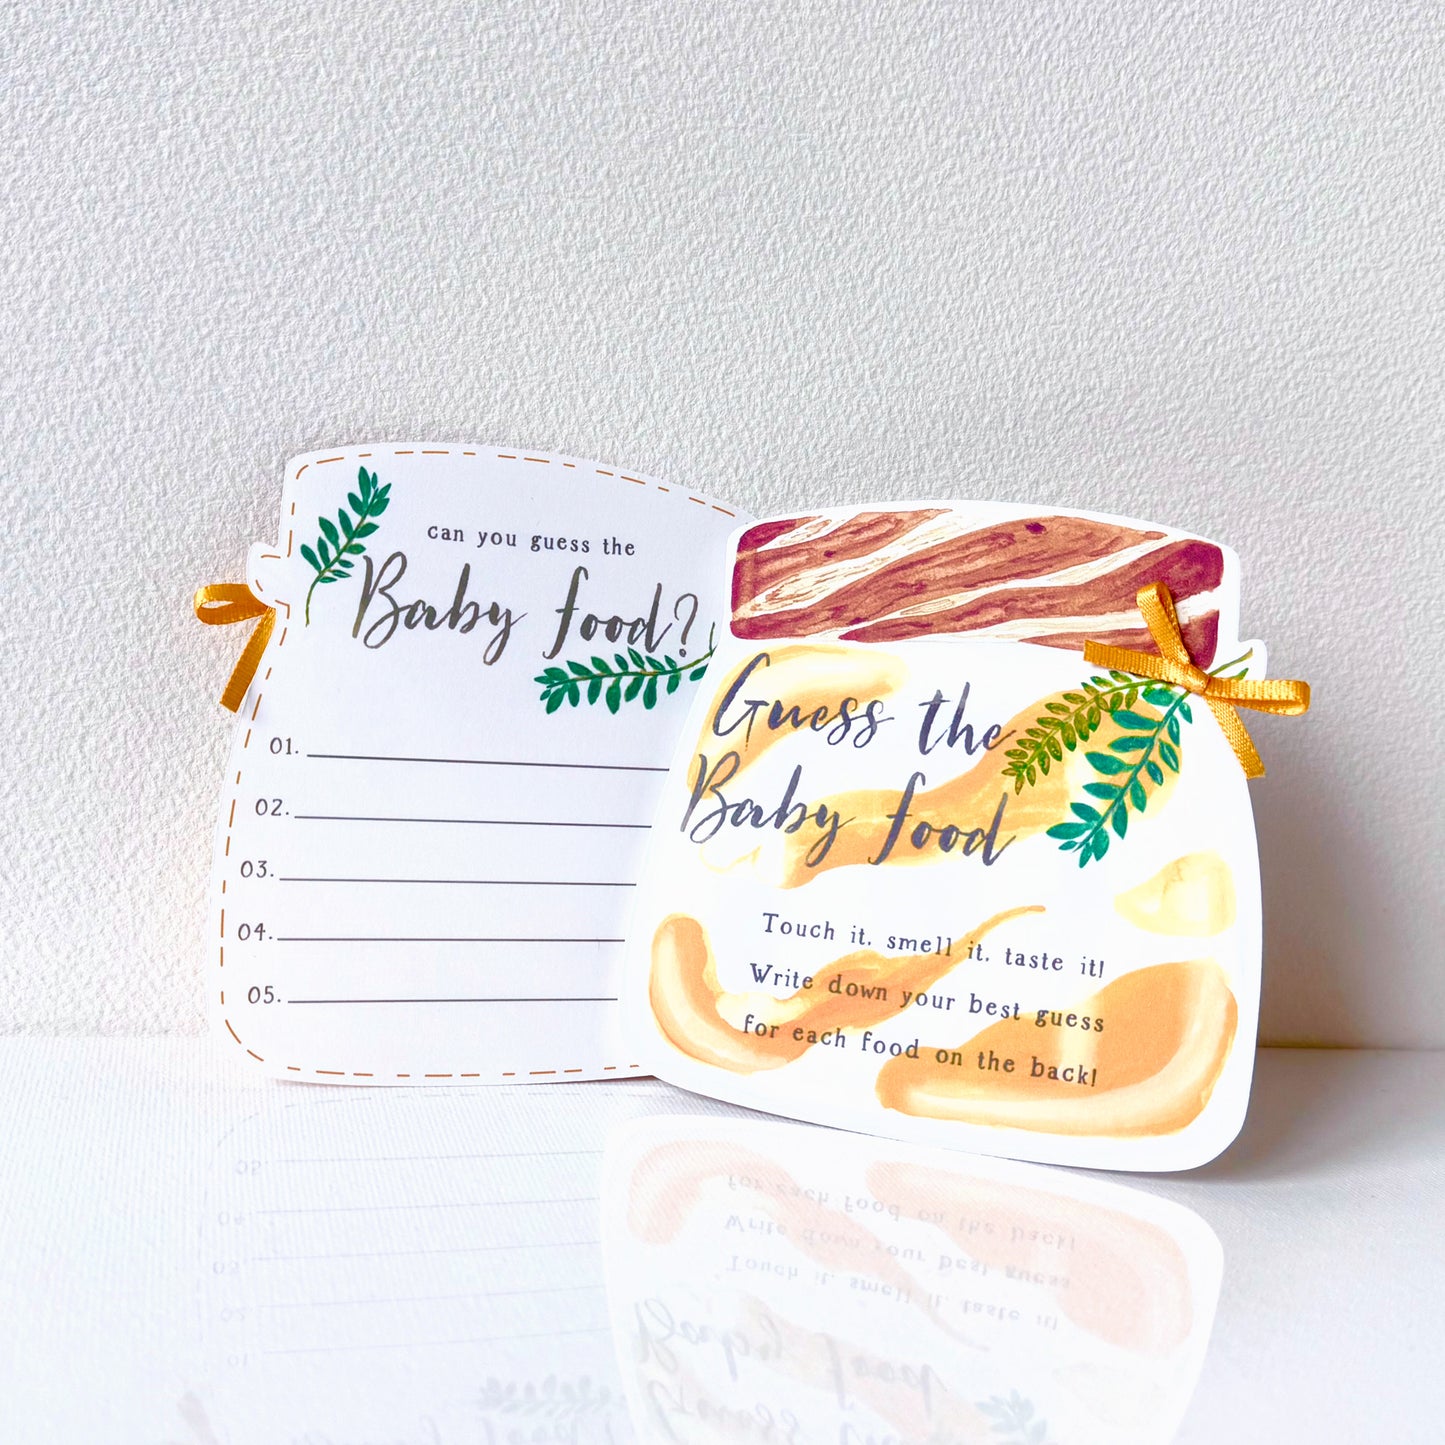 can you guess the
Baby food?
01.
02.
03.
04.
05.
Guess the
Baby food
Touch it, smell it, taste it!
Write down your best guess
for each food on the back!